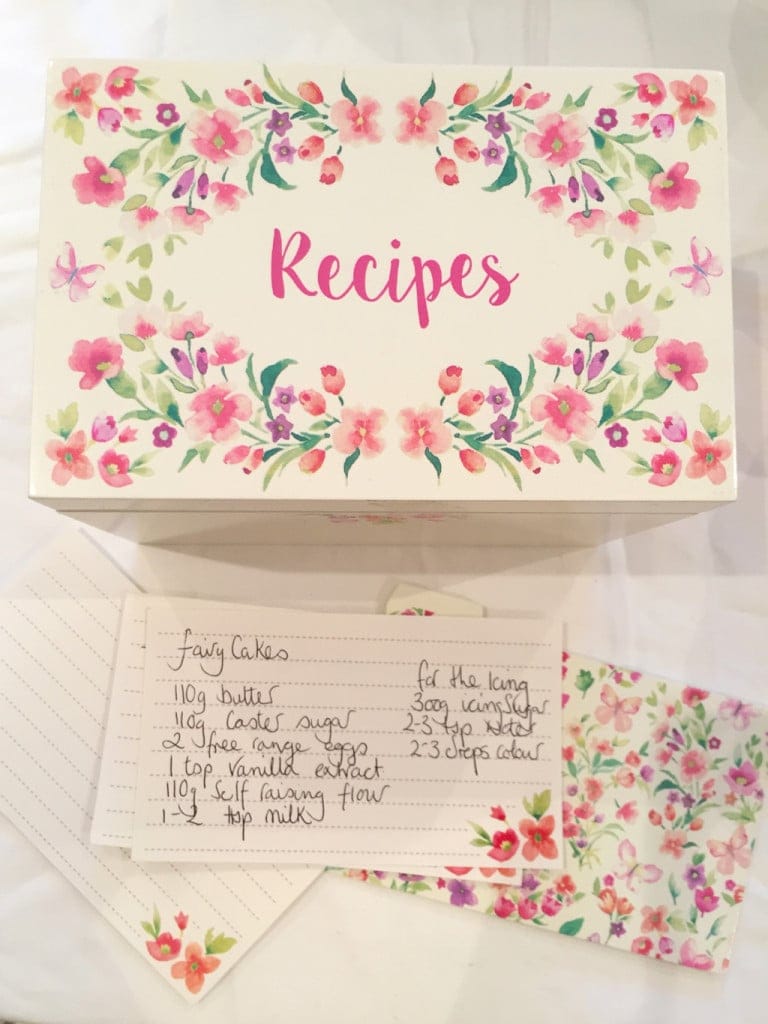 Recipes
Fairy Cakes
110g butter
110g Caster sugar
2 free range eggs
1 tsp Vanilla extract
110g Self raising flour
1-2 tsp milk
for the Icing
300g icing Sugar
2-3 tsp water
2-3 drops colour